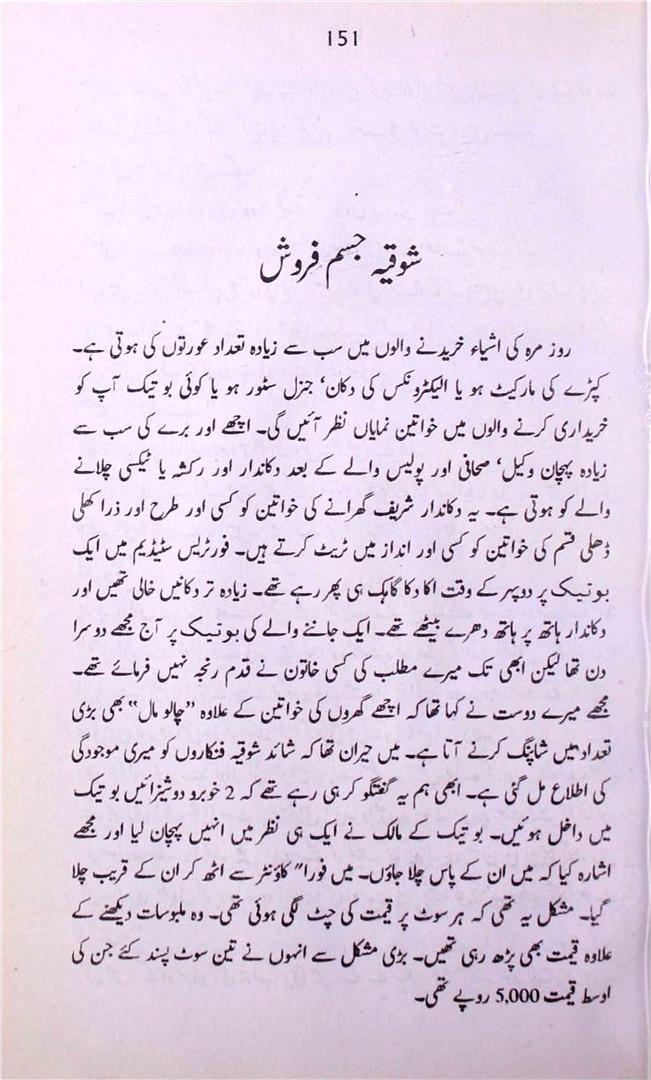 151
شوقیہ جسم فروش
روز مرہ کی اشیاء خریدنے والوں میں سب سے زیادہ تعداد عورتوں کی ہوتی ہے۔
کپڑے کی مارکیٹ ہو یا الیکٹرونکس کی دکان، جنرل سٹور ہو یا کوئی بوتیک آپ کو
خریداری کرنے والوں میں خواتین نمایاں نظر آئیں گی۔ اچھے اور برے کی سب سے
زیادہ پہچان وکیل، صحافی اور پولیس والے کے بعد دکاندار اور رکشہ یا ٹیکسی چلانے
والے کو ہوتی ہے۔ یہ دکاندار شریف گھرانے کی خواتین کو کسی اور طرح اور ذرا کھلی
ڈھلی قسم کی خواتین کو کسی اور انداز میں ٹریٹ کرتے ہیں۔ فورٹریس سٹیڈیم میں ایک
بوتیک پر دوپہر کے وقت اکا دکا گاہک ہی پھر رہے تھے۔ زیادہ تر دکانیں خالی تھیں اور
دکاندار ہاتھ پر ہاتھ دھرے بیٹھے تھے۔ ایک جاننے والے کی بوتیک پر آج مجھے دوسرا
دن تھا لیکن ابھی تک میرے مطلب کی کسی خاتون نے قدم رنجہ نہیں فرمائے تھے۔
مجھے میرے دوست نے کہا تھا کہ اچھے گھروں کی خواتین کے علاوہ ”چالو مال“ بھی بڑی
تعداد میں شاپنگ کرنے آتا ہے۔ میں حیران تھا کہ شائد شوقیہ فنکاروں کو میری موجودگی
کی اطلاع مل گئی ہے۔ ابھی ہم یہ گفتگو کر ہی رہے تھے کہ 2 خوبرو دوشیزائیں بوتیک
میں داخل ہوئیں۔ بوتیک کے مالک نے ایک ہی نظر میں انہیں پہچان لیا اور مجھے
اشارہ کیا کہ میں ان کے پاس چلا جاؤں۔ میں فورا" کاؤنٹر سے اٹھ کر ان کے قریب چلا
گیا۔ مشکل یہ تھی کہ ہر سوٹ پر قیمت کی چٹ لگی ہوئی تھی۔ وہ ملبوسات دیکھنے کے
علاوہ قیمت بھی پڑھ رہی تھیں۔ بڑی مشکل سے انہوں نے تین سوٹ پسند کئے جن کی
اوسط قیمت 5,000 روپے تھی۔